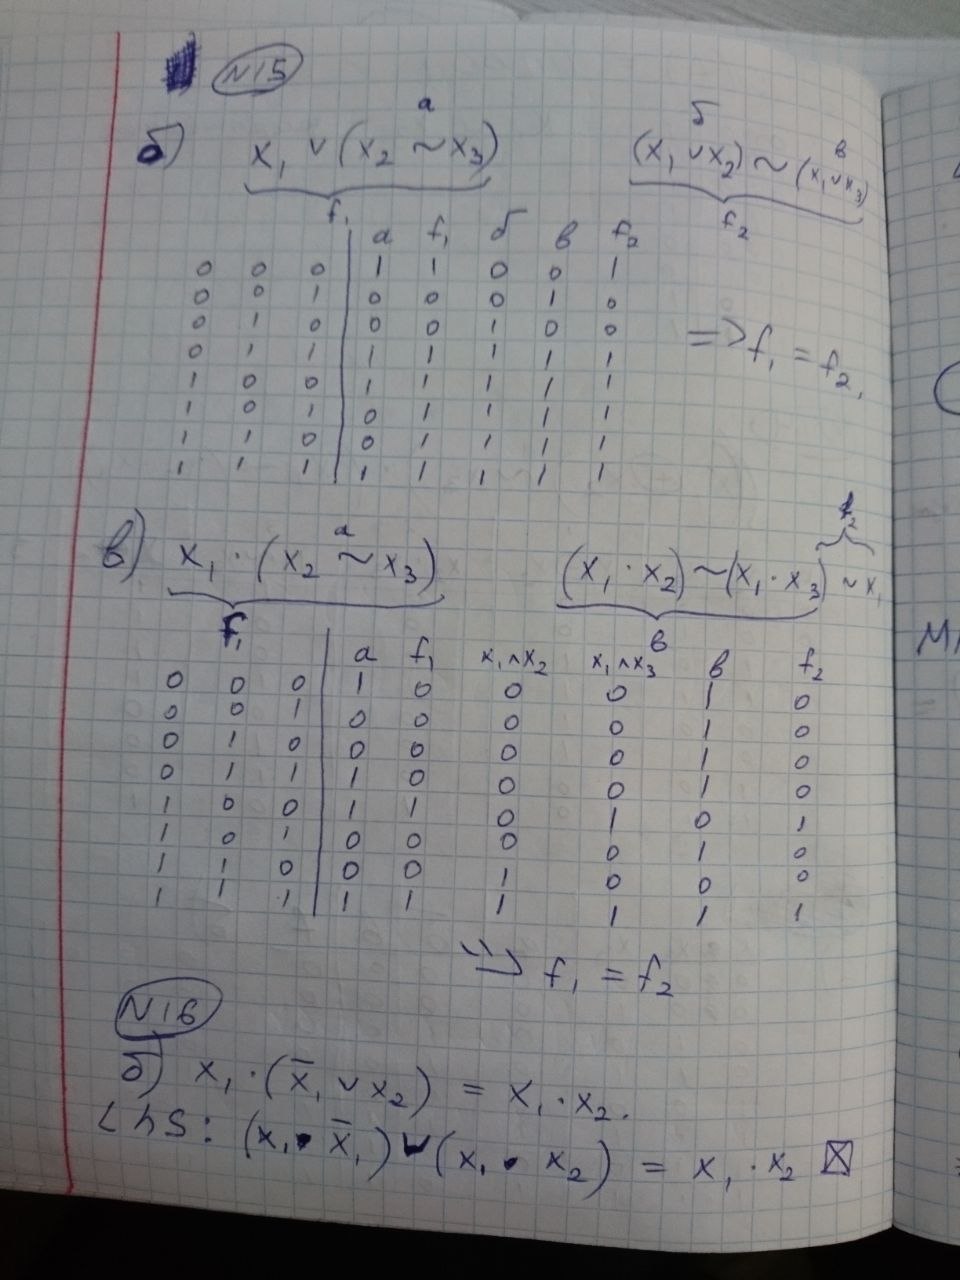 N15
а б в
б) x₁ ∨ (x₂ ~ x₃) (x₁ ∨ x₂) ~ (x₁ ∨ x₃)
f₁ f₂
a f₁ б в f₂
0 0 0 1 1 0 0 1
0 0 1 0 0 0 1 0
0 1 0 0 0 1 0 0
0 1 1 1 1 1 1 1
1 0 0 1 1 1 1 1
1 0 1 0 1 1 1 1
1 1 0 0 1 1 1 1
1 1 1 1 1 1 1 1
=> f₁ = f₂,
a
в) x₁ · (x₂ ~ x₃) (x₁ · x₂) ~ (x₁ · x₃) ~ x₁
f₁ в
a f₁ x₁∧x₂ x₁∧x₃ в f₂
0 0 0 1 0 0 0 1 0
0 0 1 0 0 0 0 1 0
0 1 0 0 0 0 0 1 0
0 1 1 1 0 0 0 1 0
1 0 0 1 1 0 1 0 1
1 0 1 0 0 0 0 1 0
1 1 0 0 0 1 0 0 0
1 1 1 1 1 1 1 1 1
=> f₁ = f₂
N16
б) x₁ · (x̄₁ ∨ x₂) = x₁ · x₂.
LHS: (x₁ · x̄₁) ∨ (x₁ · x₂) = x₁ · x₂ ☒